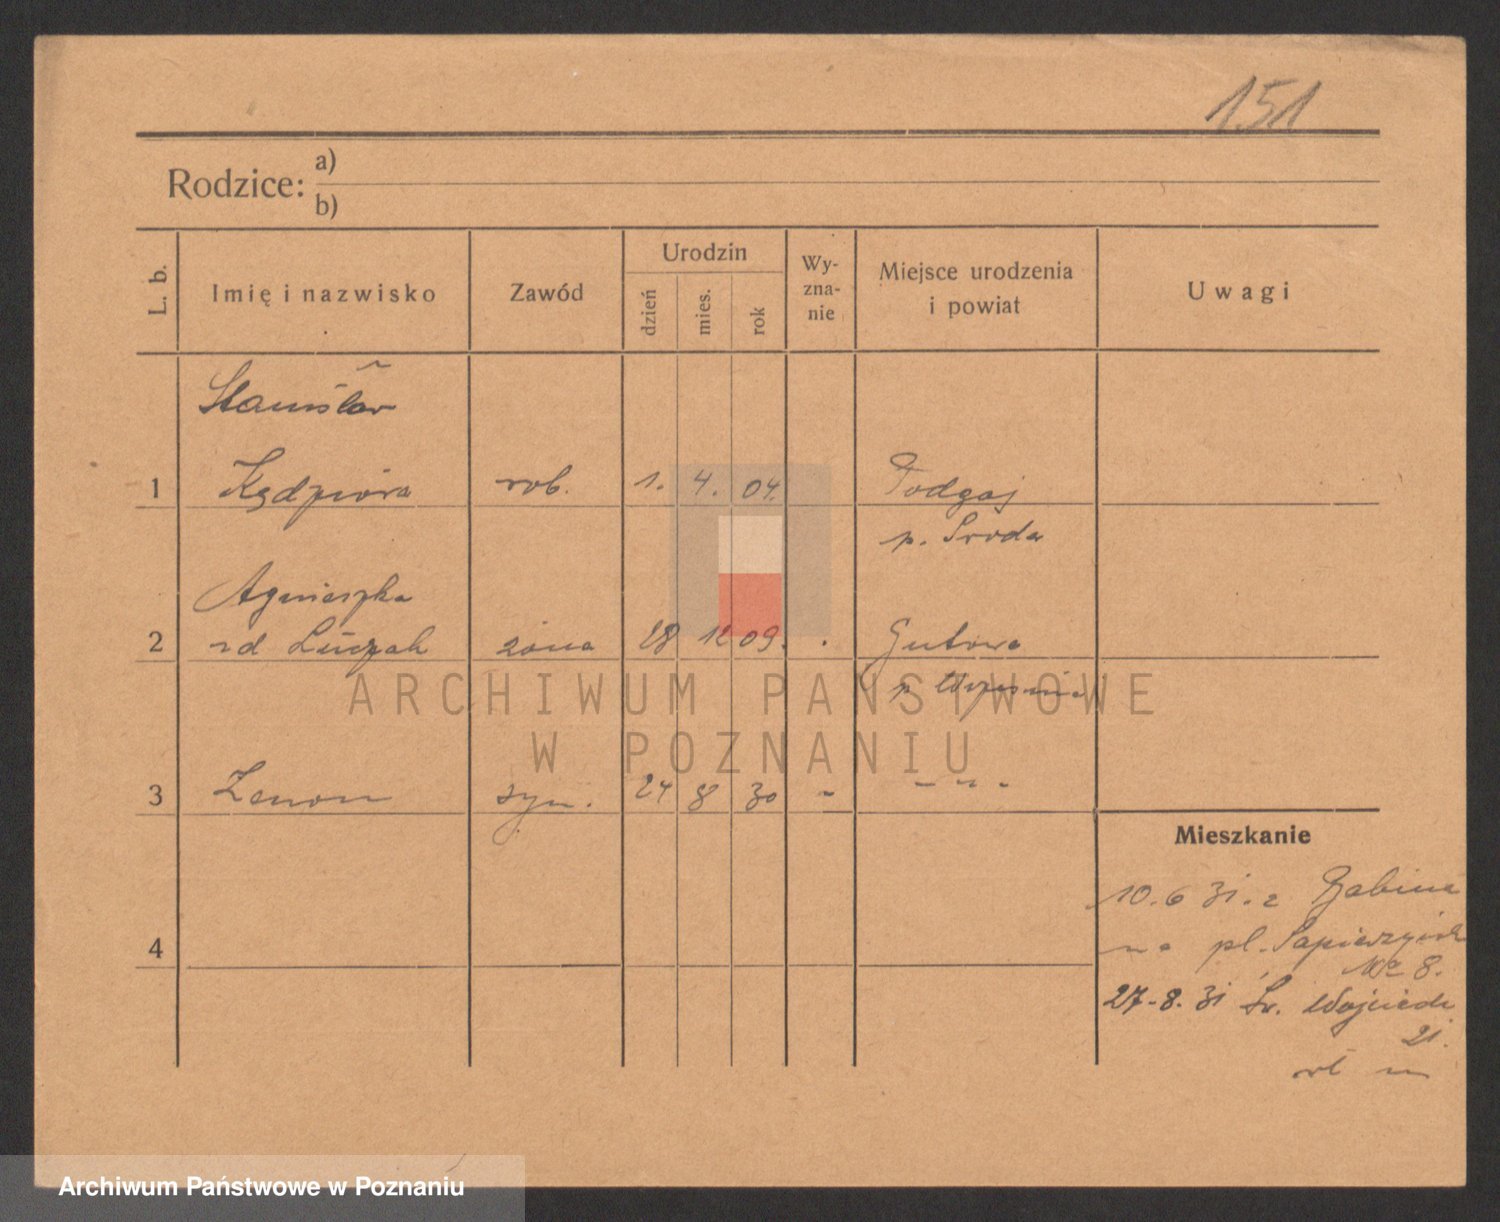 151
Rodzice: a)
b)
L. b. Imię i nazwisko Zawód Urodzin dzień mies. rok Wy-zna-nie Miejsce urodzenia i powiat Uwagi
Stanisław
1 Kędziora rob. 1. 4. 04. Podgaj
p. Sroda
Agnieszka
2 zd Łuczak żona 28 12 09. Gutowo
p. Września
ARCHIWUM PAŃSTWOWE
W POZNANIU
3 Zenon syn. 24 8 30 - - " -
Mieszkanie
10.6 31. z Babina
na pl. Sapieżyńsk
No 8.
4
27-8.31 Św. Wojciech
21.
Archiwum Państwowe w Poznaniu